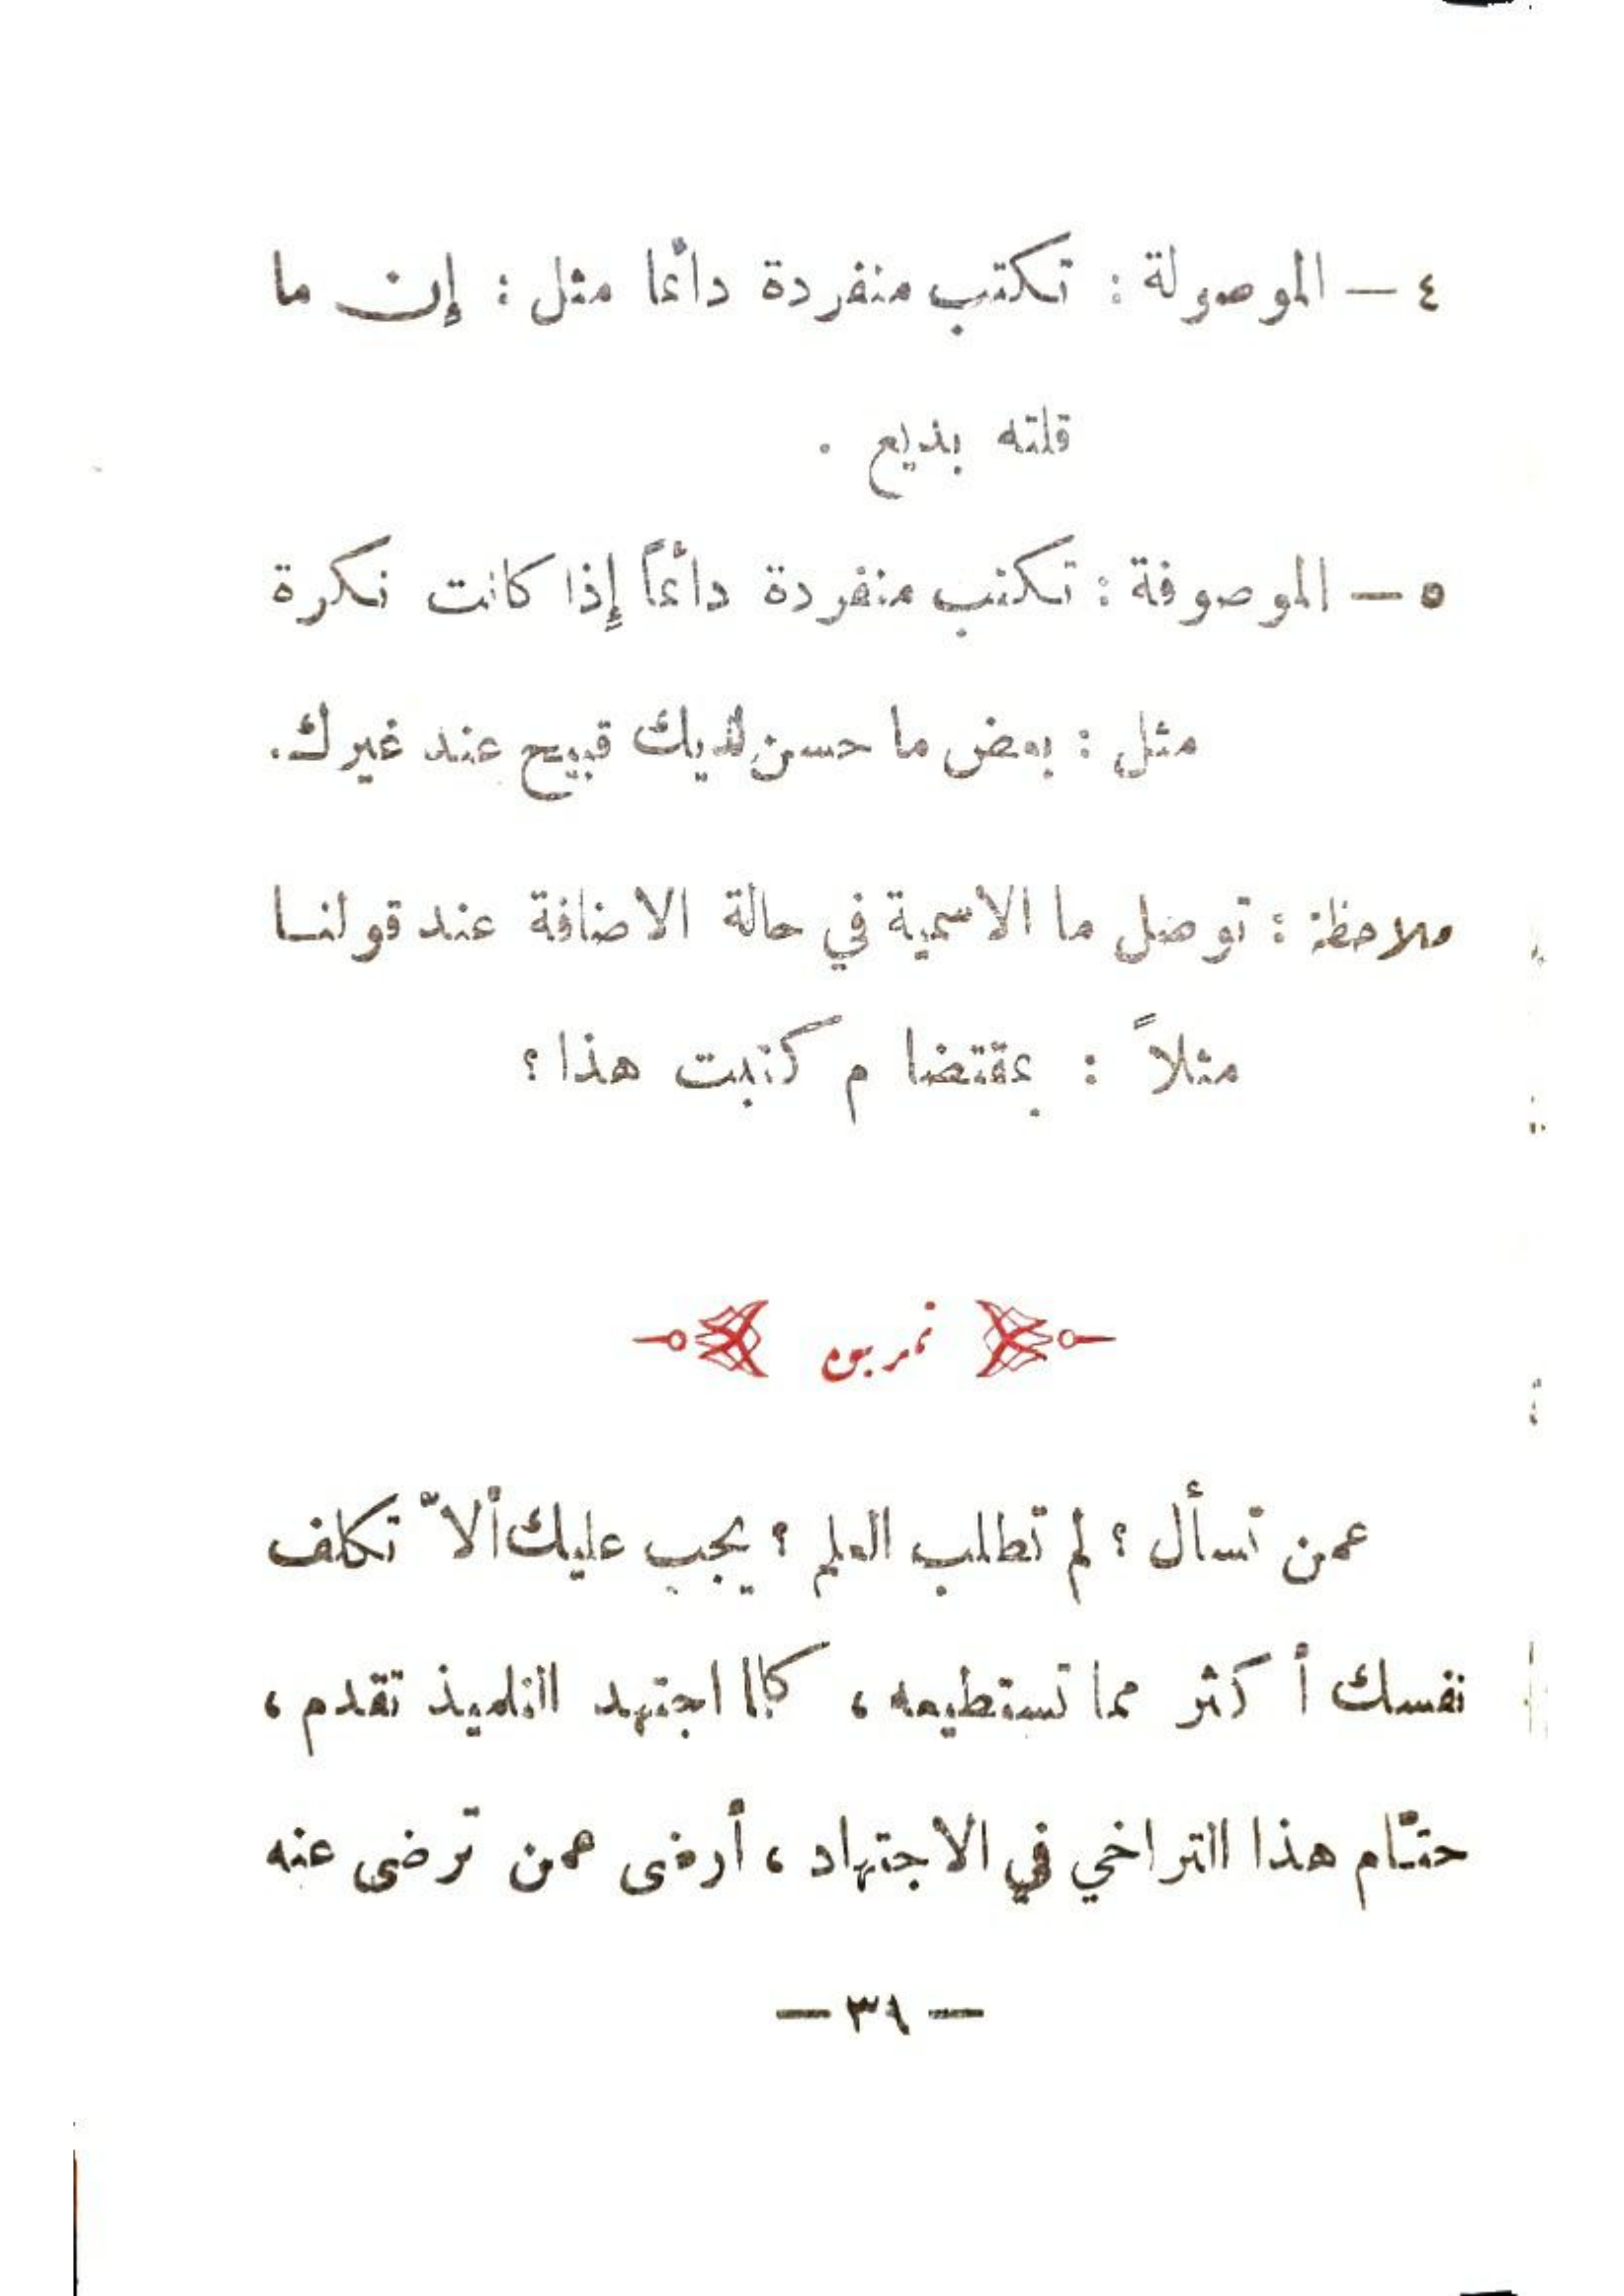 ٤ — الموصولة : تكتب منفردة دائما مثل : إن ما
قلته بديع .
٥ — الموصوفة : تكتب منفردة دائماً إذا كانت نكرة
مثل : بعض ما حسن لديك قبيح عند غيرك.
ملاحظة : توصل ما الاسمية في حالة الاضافة عند قولنا
مثلاً : بمقتضا م كتبت هذا ؟
تمرين
عمن تسأل ؟ لم تطلب العلم ؟ يجب عليك ألاّ تكلف
نفسك أكثر مما تستطيعه ، كلما اجتهد التلميذ تقدم ،
حتّام هذا التراخي في الاجتهاد ، أرضى عمن ترضى عنه
— ٣٩ —